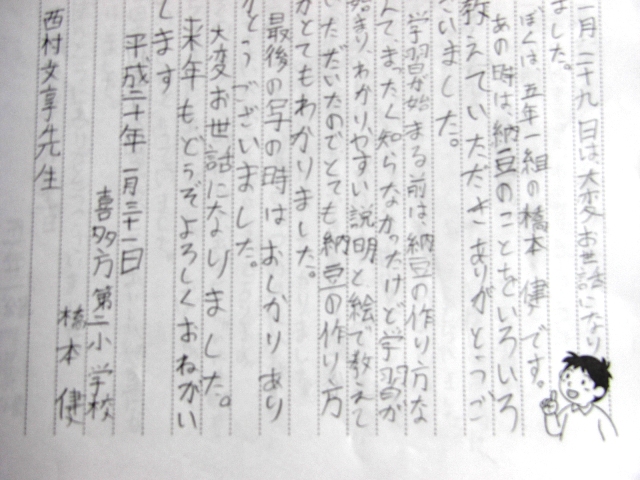 一月二十九日は大変お世話になり
ました。
ぼくは、五年一組の橋本 健です。
あの時は、納豆のことをいろいろ
教えていただきありがとうご
いました。
学習が始まる前は納豆の作り方な
んて、まったく知らなかったけど学習が
始まり、わかりやすい説明と絵で教えて
いただいたのでとても納豆の作り方
がとてもわかりました。
最後の写の時はおしかりあり
がとうございました。
大変お世話になりました。
来年も、どうぞよろしくおねがい
します
平成二十年 一月三十一日
喜多方第二小学校
橋本 健
西村文享先生